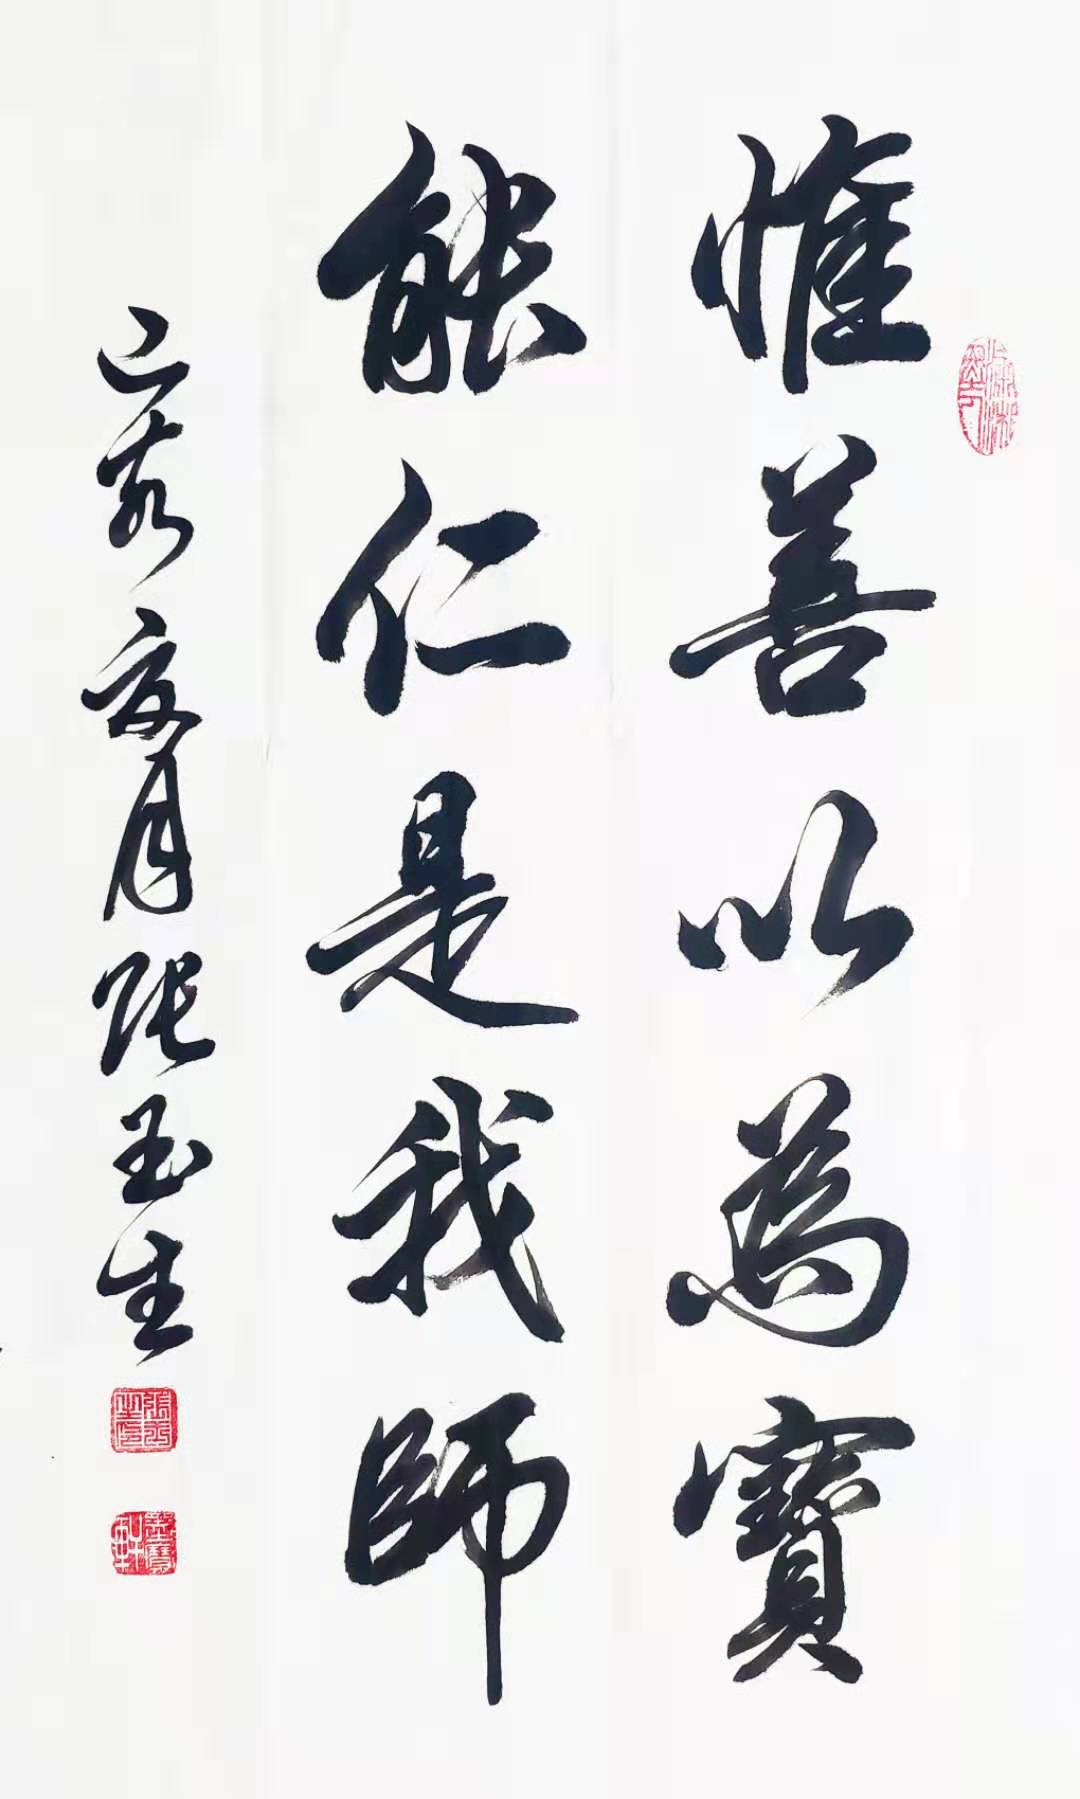 惟善以為寶
能仁是我師
己亥夏月張玉生